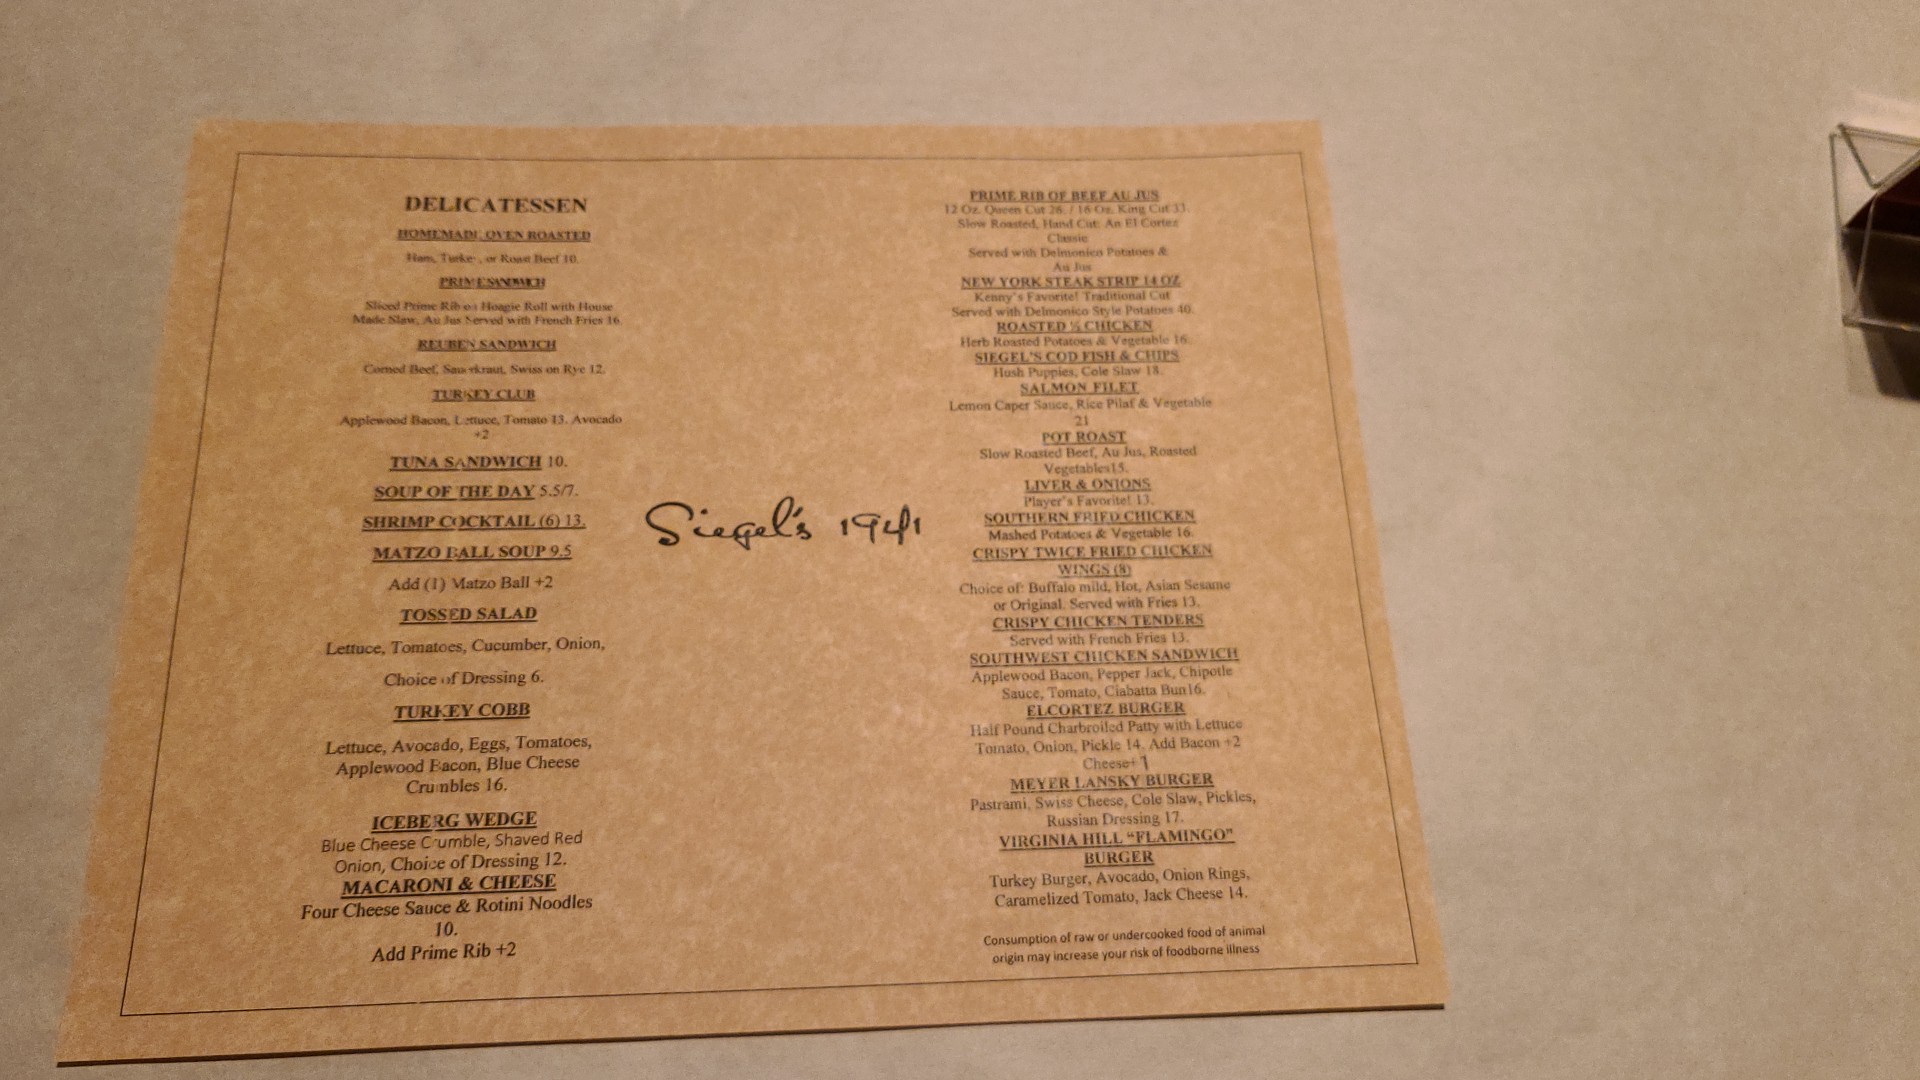 DELICATESSEN
HOMEMADE OVEN ROASTED
Ham, Turkey, or Roast Beef 10.
PRIME SANDWICH
Sliced Prime Rib on Hoagie Roll with House
Made Slaw, Au Jus Served with French Fries 16.
REUBEN SANDWICH
Corned Beef, Sauerkraut, Swiss on Rye 12.
TURKEY CLUB
Applewood Bacon, Lettuce, Tomato 13. Avocado
+2
TUNA SANDWICH 10.
SOUP OF THE DAY 5.5/7.
SHRIMP COCKTAIL (6) 13.
MATZO BALL SOUP 9.5
Add (1) Matzo Ball +2
TOSSED SALAD
Lettuce, Tomatoes, Cucumber, Onion,
Choice of Dressing 6.
TURKEY COBB
Lettuce, Avocado, Eggs, Tomatoes,
Applewood Bacon, Blue Cheese
Crumbles 16.
ICEBERG WEDGE
Blue Cheese Crumble, Shaved Red
Onion, Choice of Dressing 12.
MACARONI & CHEESE
Four Cheese Sauce & Rotini Noodles
10.
Add Prime Rib +2
Siegel's 1941
PRIME RIB OF BEEF AU JUS
12 Oz. Queen Cut 26. / 16 Oz. King Cut 33.
Slow Roasted, Hand Cut: An El Cortez
Classic
Served with Delmonico Potatoes &
Au Jus
NEW YORK STEAK STRIP 14 OZ
Kenny's Favorite! Traditional Cut
Served with Delmonico Style Potatoes 40.
ROASTED ½ CHICKEN
Herb Roasted Potatoes & Vegetable 16.
SIEGEL'S COD FISH & CHIPS
Hush Puppies, Cole Slaw 18.
SALMON FILET
Lemon Caper Sauce, Rice Pilaf & Vegetable
21
POT ROAST
Slow Roasted Beef, Au Jus, Roasted
Vegetables15.
LIVER & ONIONS
Player's Favorite! 13.
SOUTHERN FRIED CHICKEN
Mashed Potatoes & Vegetable 16.
CRISPY TWICE FRIED CHICKEN
WINGS (8)
Choice of: Buffalo mild, Hot, Asian Sesame
or Original. Served with Fries 13.
CRISPY CHICKEN TENDERS
Served with French Fries 13.
SOUTHWEST CHICKEN SANDWICH
Applewood Bacon, Pepper Jack, Chipotle
Sauce, Tomato, Ciabatta Bun16.
ELCORTEZ BURGER
Half Pound Charbroiled Patty with Lettuce
Tomato, Onion, Pickle 14. Add Bacon +2
Cheese+1
MEYER LANSKY BURGER
Pastrami, Swiss Cheese, Cole Slaw, Pickles,
Russian Dressing 17.
VIRGINIA HILL “FLAMINGO”
BURGER
Turkey Burger, Avocado, Onion Rings,
Caramelized Tomato, Jack Cheese 14.
Consumption of raw or undercooked food of animal
origin may increase your risk of foodborne illness